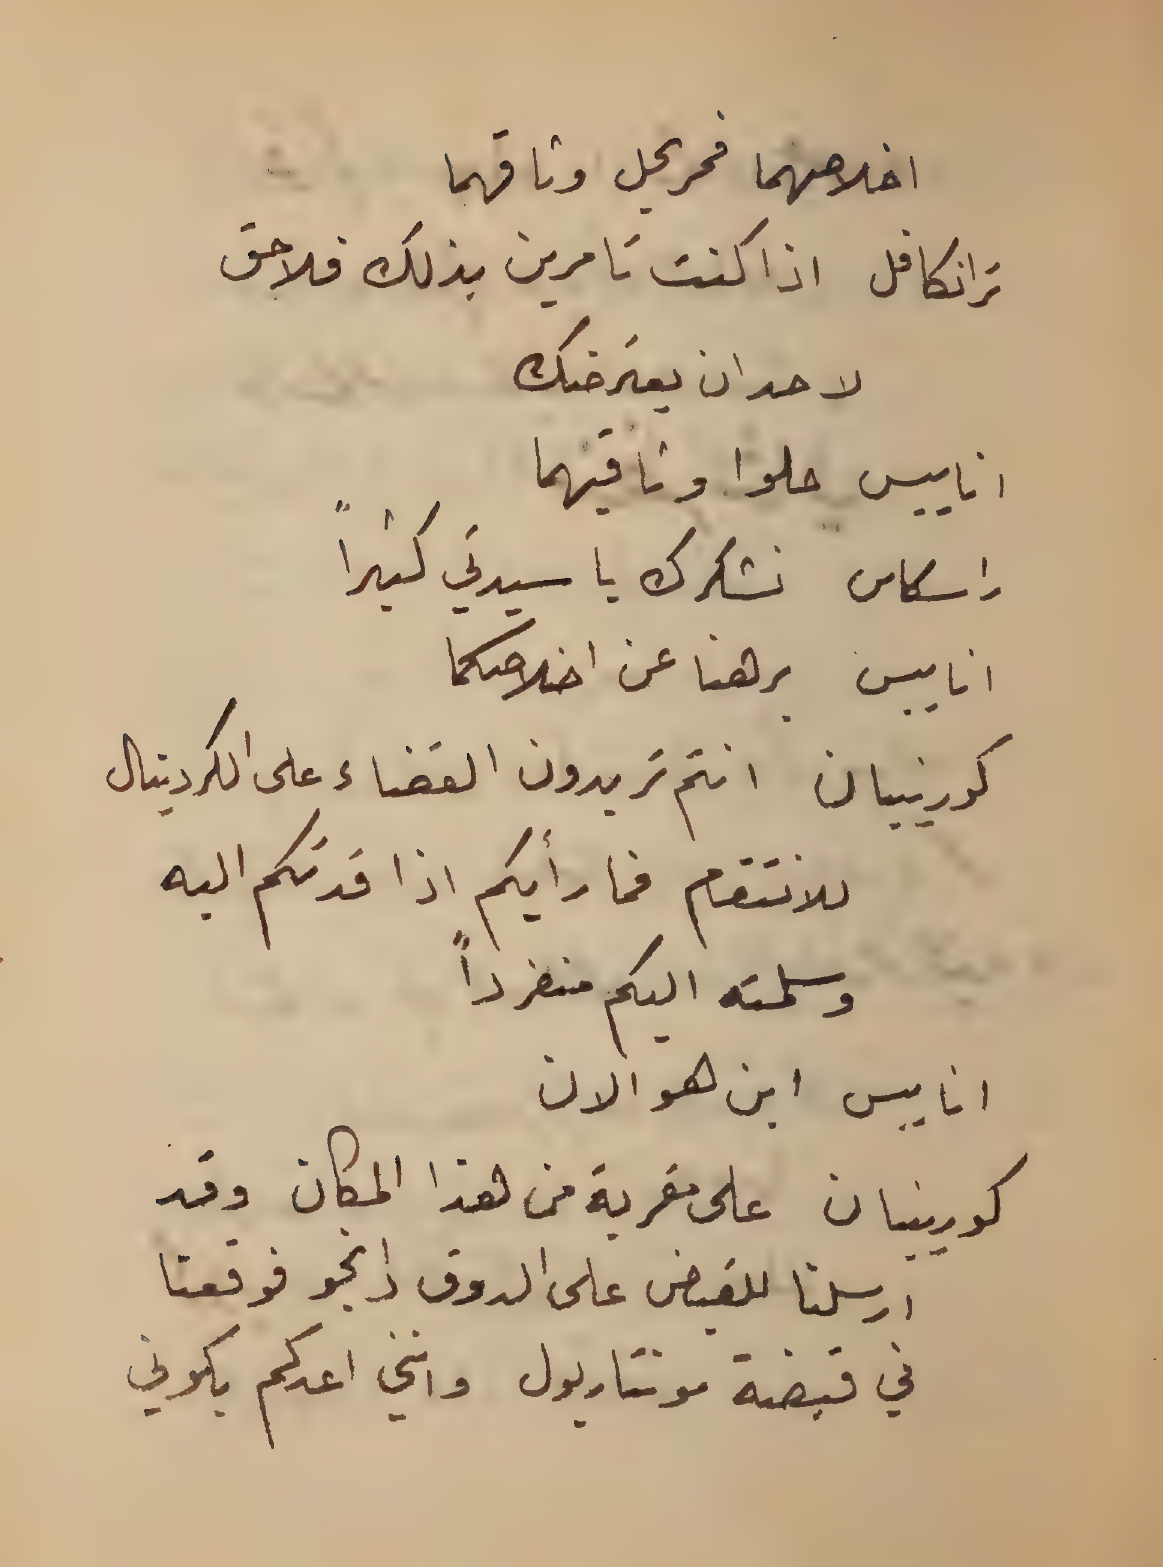 اخلاصهما فمر بحل وثاقهما
ترانكافل اذا كنت تامرين بذلك فلا حق
لاحد ان يعترضك
اناييس حلوا وثاقيهما
راسكاس نشكرك يا سيدتي كثيراً
اناييس برهنا عن اخلاصكما
كورينيان انتم تريدون القضاء على الكردينال
للانتقام فما رأيكم اذا قدتكم اليه
وسلمته اليكم منفرداً
اناييس اين هو الان
كورينيان على مقربة من هذا المكان وقد
ارسلنا للقبض على الدوق دانجو فوقعنا
في قبضة مونتاريول وانني اعدكم بكوني